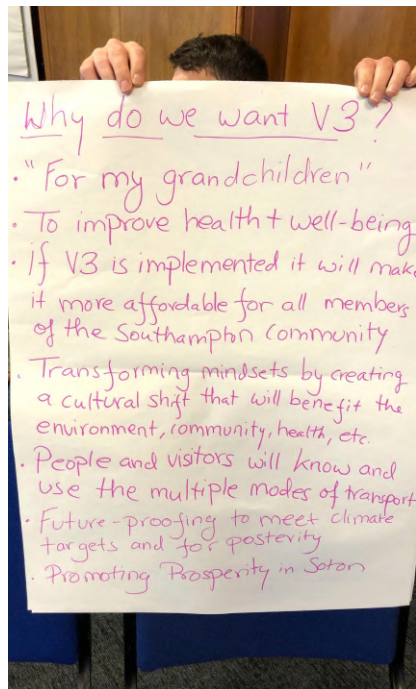 Why do we want V3?
· "For my grandchildren"
· To improve health + well-being
· If V3 is implemented it will make
it more affordable for all members
of the Southampton Community
· Transforming mindsets by creating
a cultural shift that will benefit the
environment, community, health, etc.
· People and visitors will know and
use the multiple modes of transport
· Future-proofing to meet climate
targets and for posterity
· Promoting Prosperity in Soton